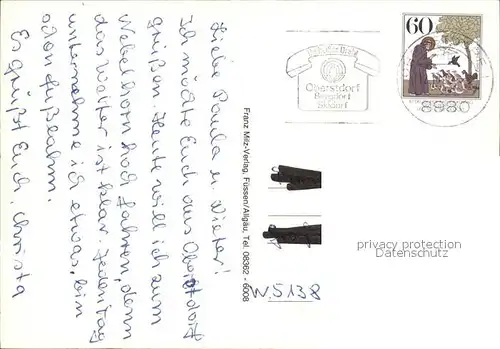 Liebe Paula u. Dieter!
Ich möchte Euch aus Oberstdorf
grüßen. Heute will ich zum
Nebelhorn hoch fahren, denn
das Wetter ist klar. Jeden Tag
unternehme ich etwas, bin
schon fußlahm.
Es grüßt Euch, Christa
Franz Milz-Verlag, Füssen/Allgäu, Tel. 08362 - 6008
Oberstdorf
Bergdorf
Skidorf
60
8980
privacy protection
Datenschutz
W. 5138